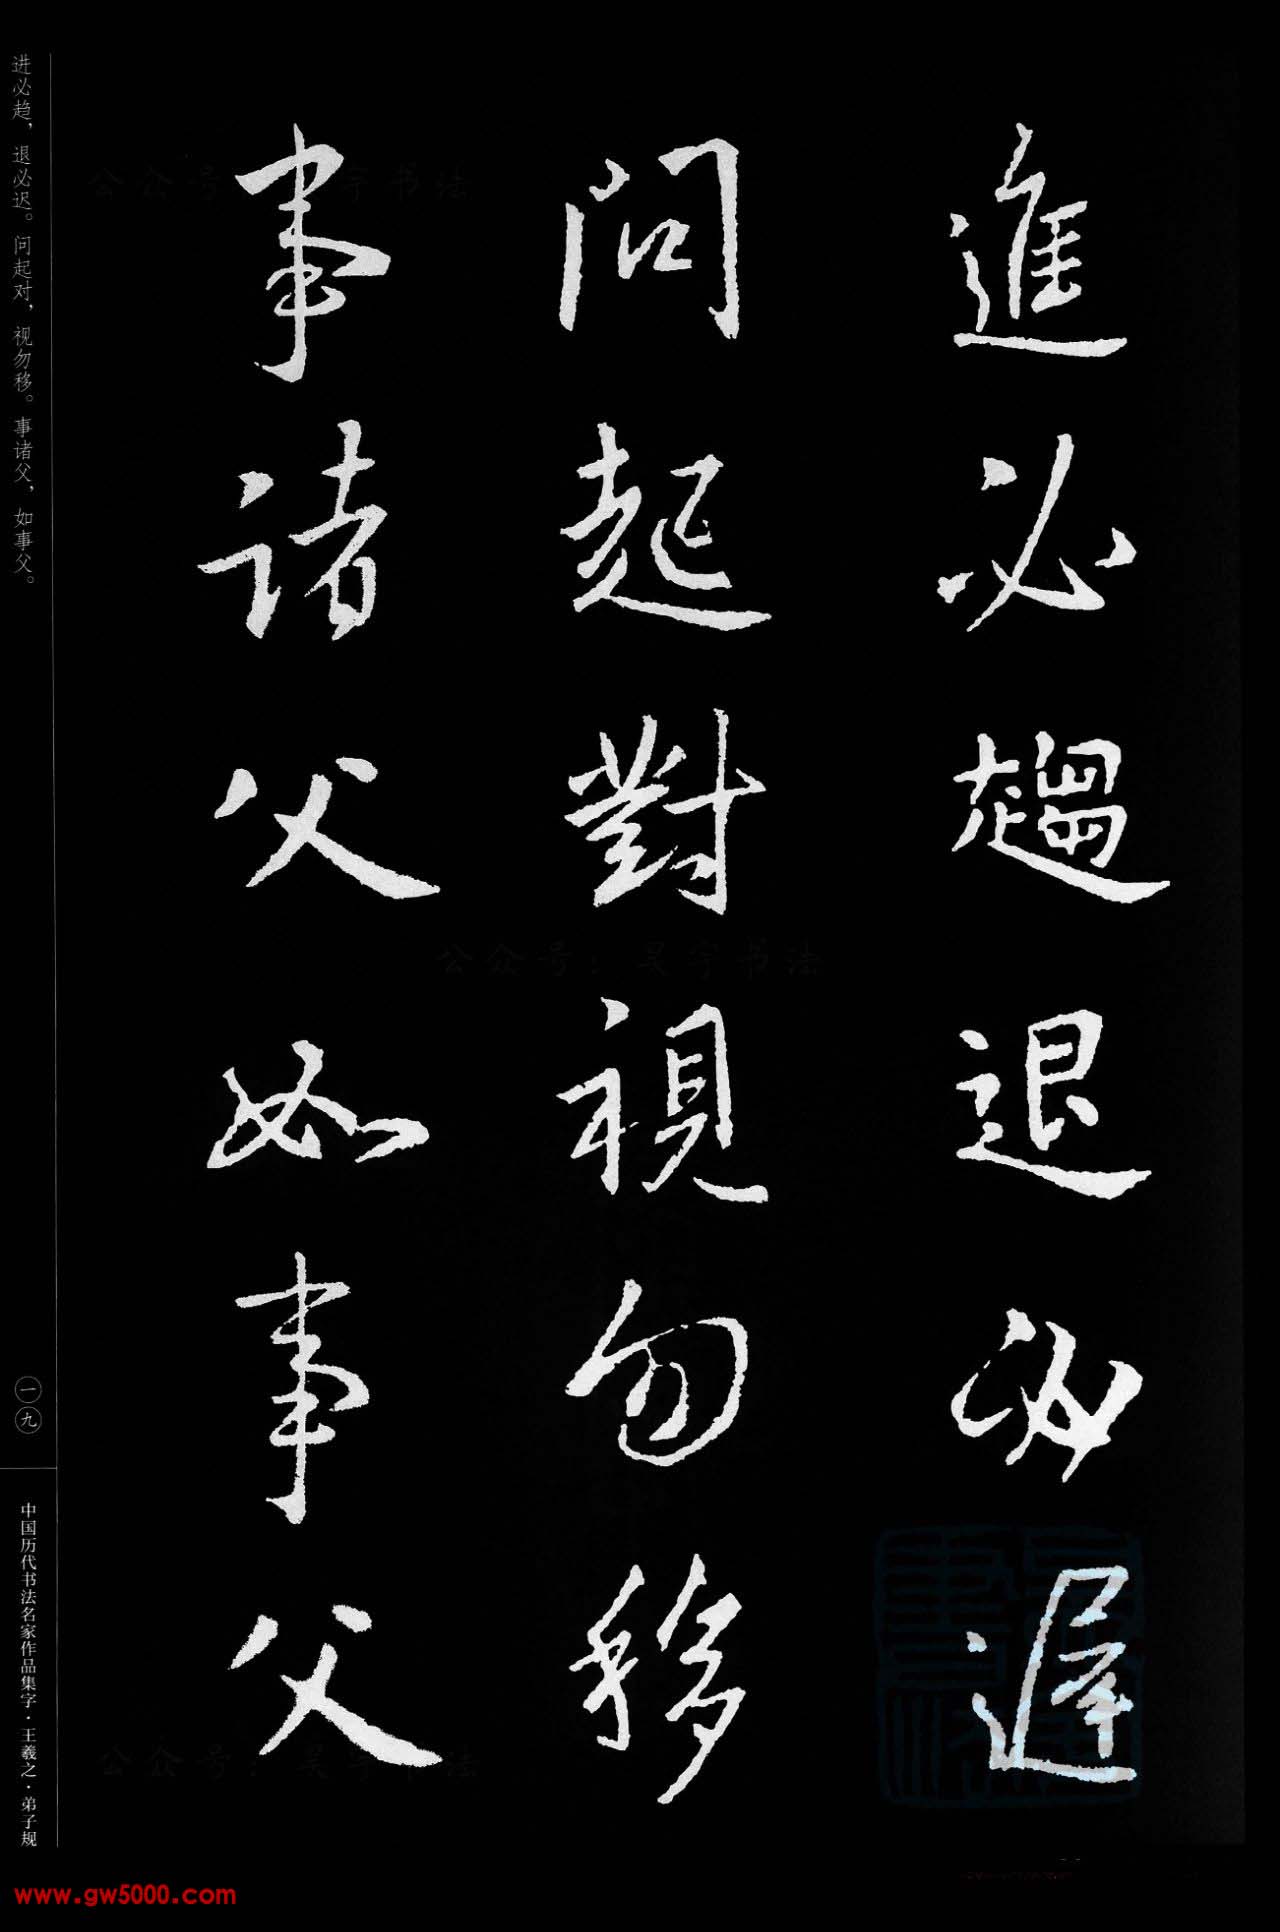 進必趨退必遲
問起對視勿移
事諸父如事父
进必趋，退必迟。问起对，视勿移。事诸父，如事父。
一九
中国历代书法名家作品集字·王羲之·弟子规
公众号：昊宇书法
公众号：昊宇书法
公众号：昊宇书法
www.gw5000.com